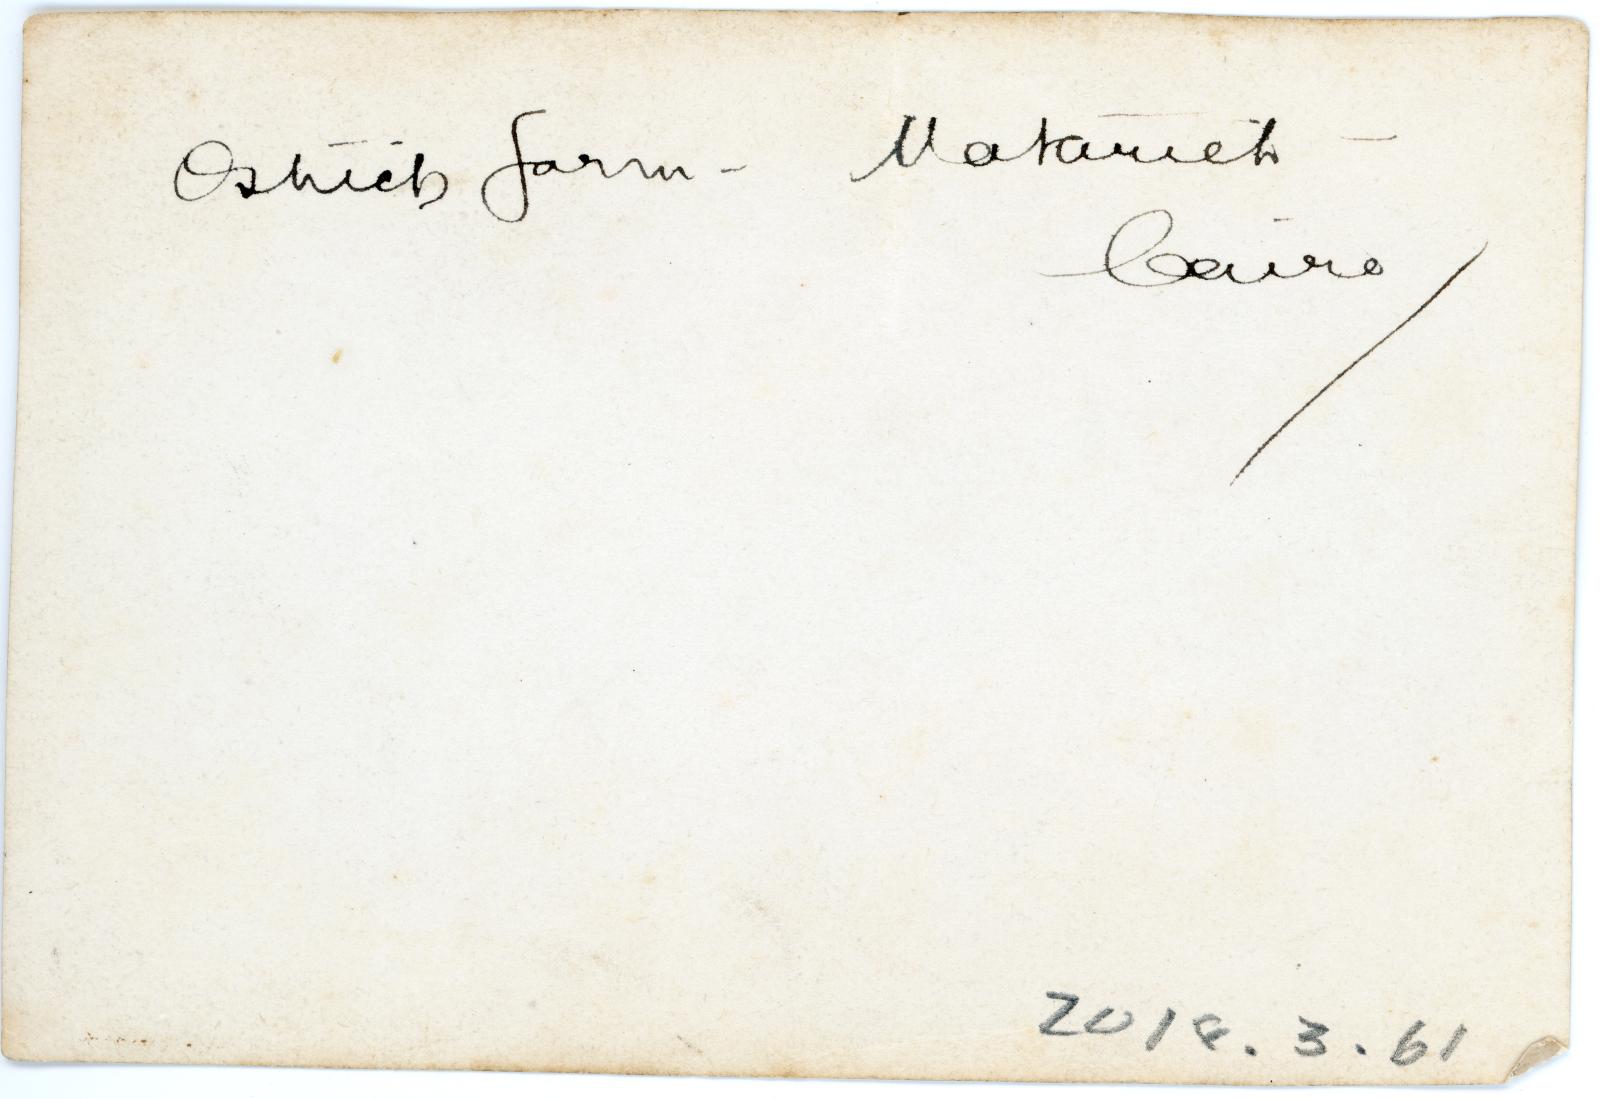 Ostrich farm - Matarieh -
Cairo
2018.3.61